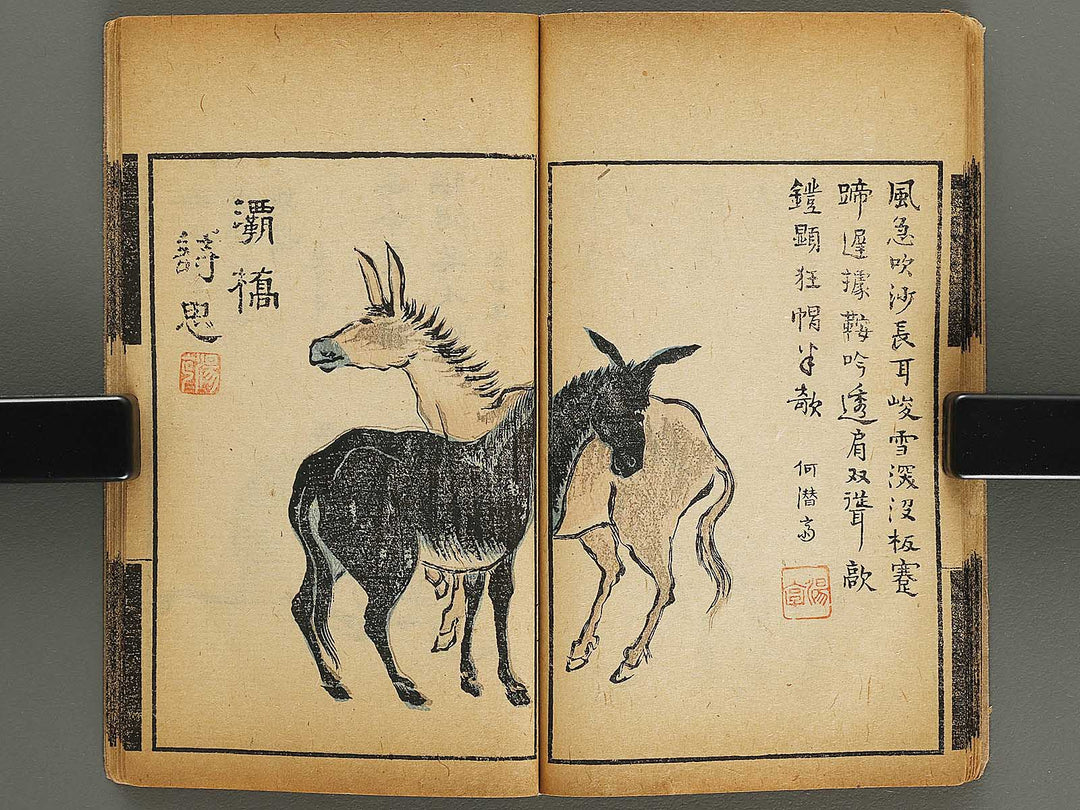 風急吹沙長耳峻雪深没板蹇
蹄遲據鞍吟透肩双聳歃
鐙顕狂帽半欹
何潛斋
灞橋
詩思